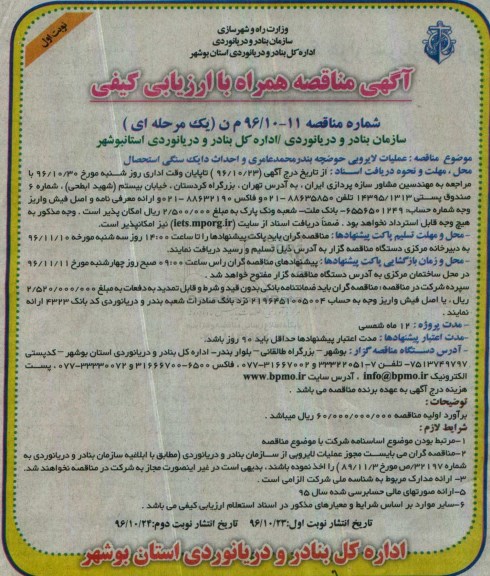 نوبت اول
وزارت راه و شهرسازی
سازمان بنادر و دریانوردی
اداره کل بنادر و دریانوردی استان بوشهر
آگهی مناقصه همراه با ارزیابی کیفی
شماره مناقصه ۱۱-۹۶/۱۰ م ن (یک مرحله ای)
سازمان بنادر و دریانوردی /اداره کل بنادر و دریانوردی استانبوشهر
موضوع مناقصه : عملیات لایروبی حوضچه بندرمحمدعامری و احداث دایک سنگی استحصال
محل ، مهلت و نحوه دریافت اسناد : از تاریخ درج آگهی (۹۶/۱۰/۲۳) تاپایان وقت اداری روز شنبه مورخ ۹۶/۱۰/۳۰ با
مراجعه به مهندسین مشاور سازه پردازی ایران ، به آدرس تهران ، بزرگراه کردستان ، خیابان بیستم (شهید ابطحی) ، شماره ۶
صندوق پستی ۱۴۳۹۵/۱۳۱۳ تلفن ۸۸۶۳۵۸۵۰-۰۲۱ و فاکس ۸۸۶۳۲۱۹۰-۰۲۱ و ارائه معرفی نامه و اصل فیش واریز
وجه شماره حساب ۶۵۵۶۵۰۱۲۴۹- بانک ملت- شعبه ونک پارک به مبلغ ۲/۵۰۰/۰۰۰ ریال امکان پذیر است . وجه مذکور به
هیچ وجه قابل استرداد نخواهد بود . ضمناً دریافت اسناد از سایت (iets.mporg.ir) نیز امکانپذیر است.
-محل و مهلت تسلیم پاکت پیشنهادها : مناقصه گران باید پاکت پیشنهادها را تا ساعت ۱۴:۰۰ روز سه شنبه مورخه ۹۶/۱۱/۱۰
به دبیرخانه مرکزی دستگاه مناقصه گزار به آدرس ذیل تسلیم و رسید دریافت نمایند.
-محل و زمان بازگشایی پاکت پیشنهادها : پیشنهادهای مناقصه گران راس ساعت ۰۹:۰۰ صبح روز چهارشنبه مورخ ۹۶/۱۱/۱۱
در محل ساختمان مرکزی به آدرس دستگاه مناقصه گزار مفتوح خواهد شد.
سپرده شرکت در مناقصه : مناقصه گران باید ضمانتنامه بانکی بدون قید و شرط و قابل تمدید به دفعات به مبلغ ۲/۵۲۰/۰۰۰/۰۰۰
ریال ، یا اصل فیش واریز وجه به حساب ۲۱۹۶۴۵۱۰۰۵۰۰۴ نزد بانک صادرات شعبه بندر و دریانوردی کد بانک ۴۳۲۳ ارائه
نمایند .
-مدت پروژه : ۱۲ ماه شمسی
-مدت اعتبار پیشنهادها : مدت اعتبار پیشنهادها حداقل باید ۹۰ روز باشد.
- آدرس دستگاه مناقصه گزار : بوشهر – بزرگراه طالقانی – بلوار بندر– اداره کل بنادر و دریانوردی استان بوشهر – کدپستی
۷۵۱۳۷۴۹۷۹۷- تلفن ۷-۳۳۳۲۲۰۵۱ و ۳۱۶۶۷۰۰۲-۰۷۷ ، فاکس ۶۵۰۰-۳۱۶۶۷۷۰۰ و ۳۳۳۳۰۰۷۲-۰۷۷ ، پست
الکترونیک info@bpmo.ir ، آدرس سایت www.bpmo.ir
هزینه درج آگهی به عهده برنده مناقصه می باشد .
توضیحات :
برآورد اولیه مناقصه ۶۰/۰۰۰/۰۰۰/۰۰۰ ریال میباشد .
شرایط لازم :
۱-مرتبط بودن موضوع اساسنامه شرکت با موضوع مناقصه
۲-مناقصه گران می بایست مجوز عملیات لایروبی از سازمان بنادر و دریانوردی (مطابق با ابلاغیه سازمان بنادر و دریانوردی به
شماره ۳۲۱۹۷/ص مورخ ۸۹/۱۱/۳) را اخذ نموده باشند. بدیهی است در غیر اینصورت مجاز به شرکت در مناقصه نخواهند شد.
۳- ارائه مدارک مربوط به شناسه ملی شرکت الزامی است .
۵-ارائه صورتهای مالی حسابرسی شده سال ۹۵
۶-سایر موارد بر اساس شرایط و معیارهای مذکور در اسناد استعلام ارزیابی کیفی می باشد .
تاریخ انتشار نوبت اول: ۹۶/۱۰/۲۳ تاریخ انتشار نوبت دوم: ۹۶/۱۰/۲۴
اداره کل بنادر و دریانوردی استان بوشهر